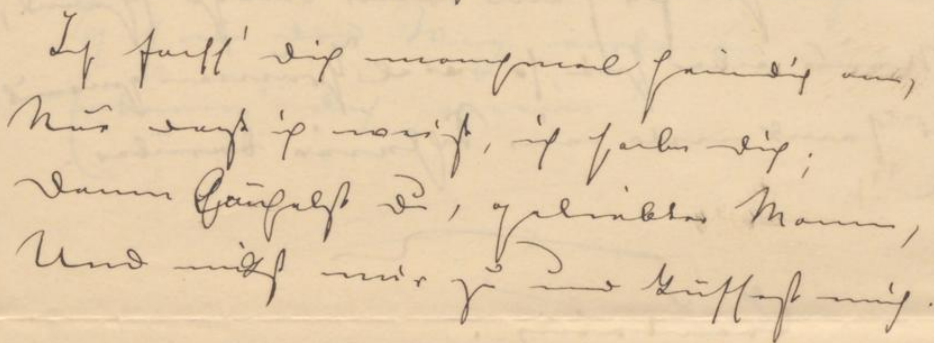 Ich fass' dich manchmal heimlich an,
Nur daß ich weiß, ich habe dich;
Dann lächelst du, geliebter Mann,
Und nickst mir zu und küssest mich.